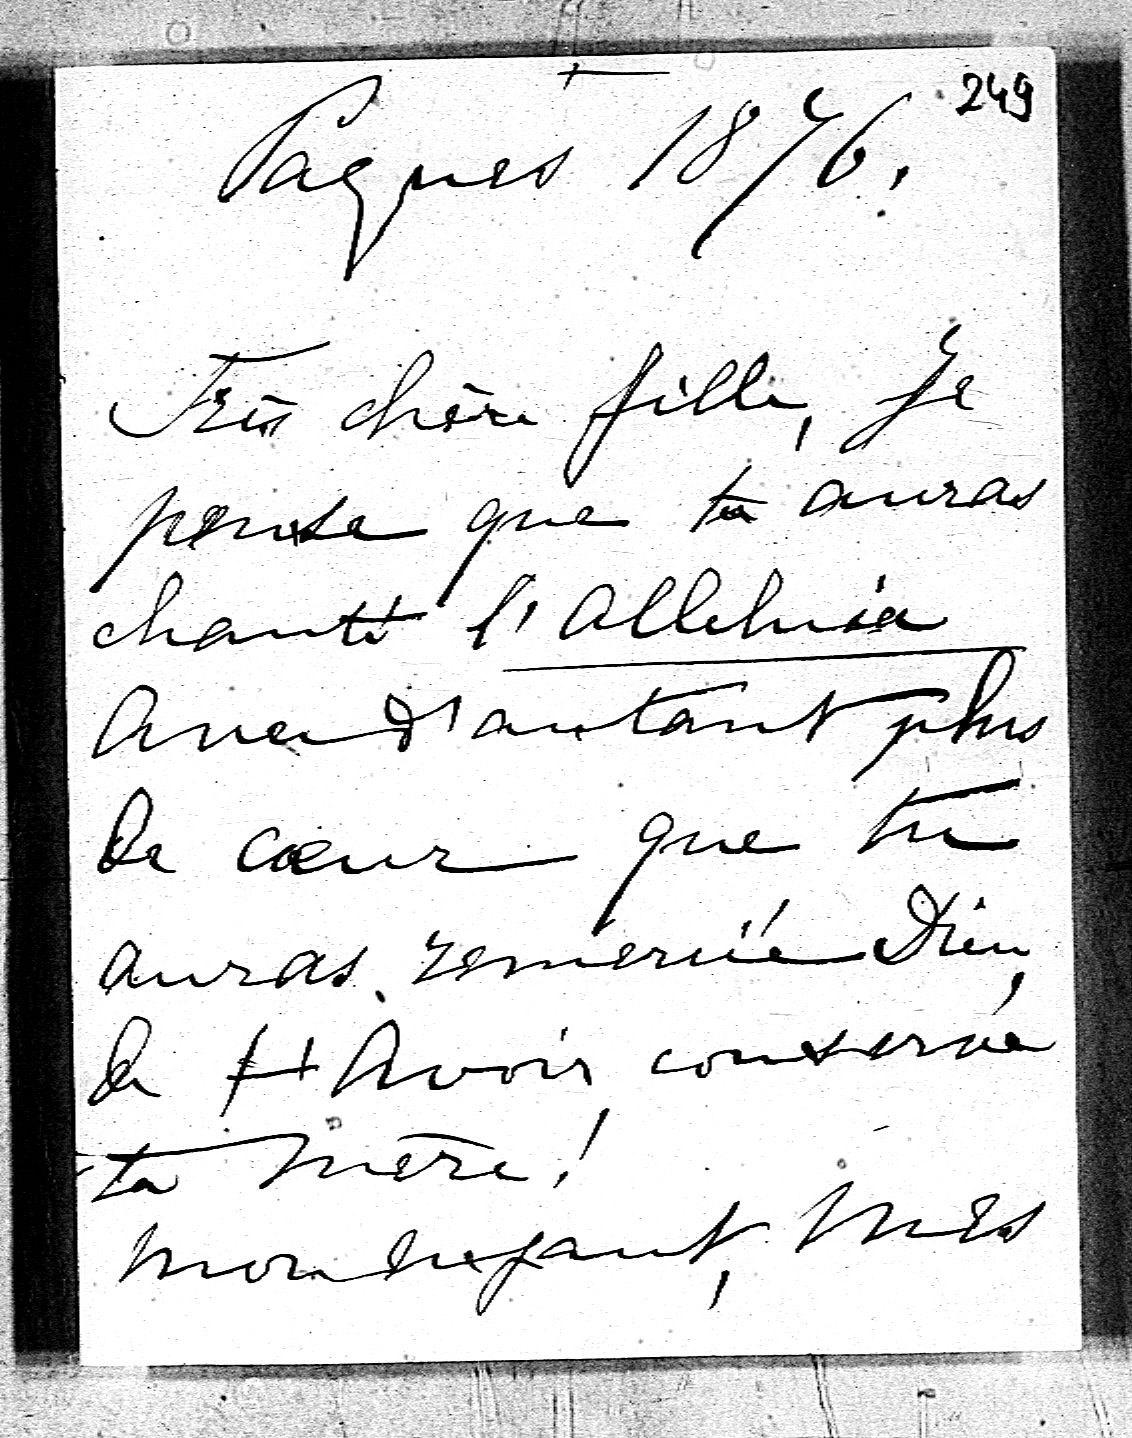 249
Paques 1876.
Très chère fille, je
pense que tu auras
chanté l'Alleluia
avec d'autant plus
de cœur que tu
auras remercié Dieu,
de t'avoir conservé
ta mère!
Mon enfant, mes